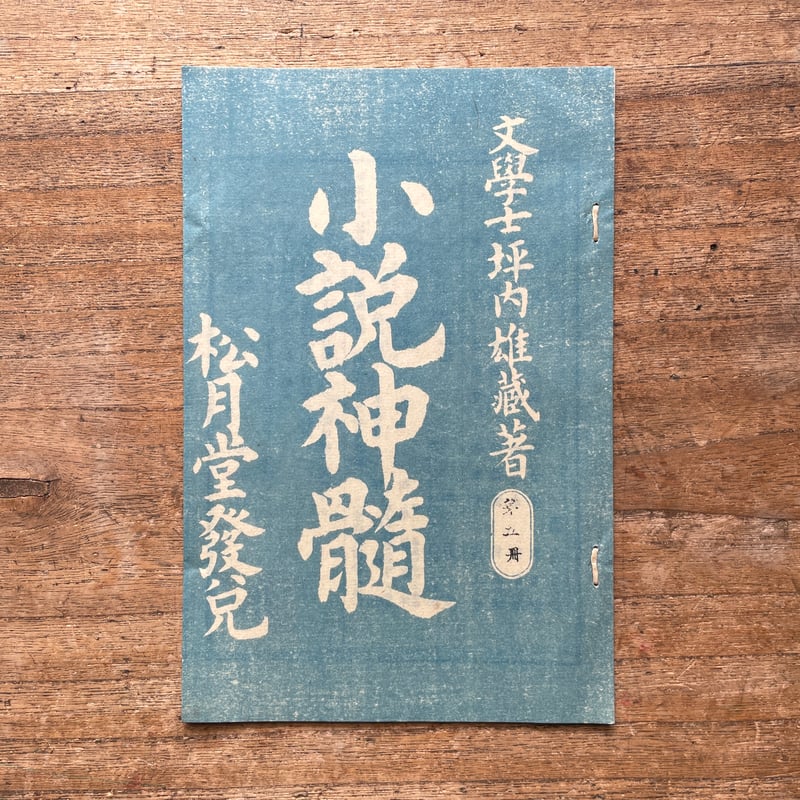 文學士坪內雄藏著
第五册
小說神髓
松月堂發兌